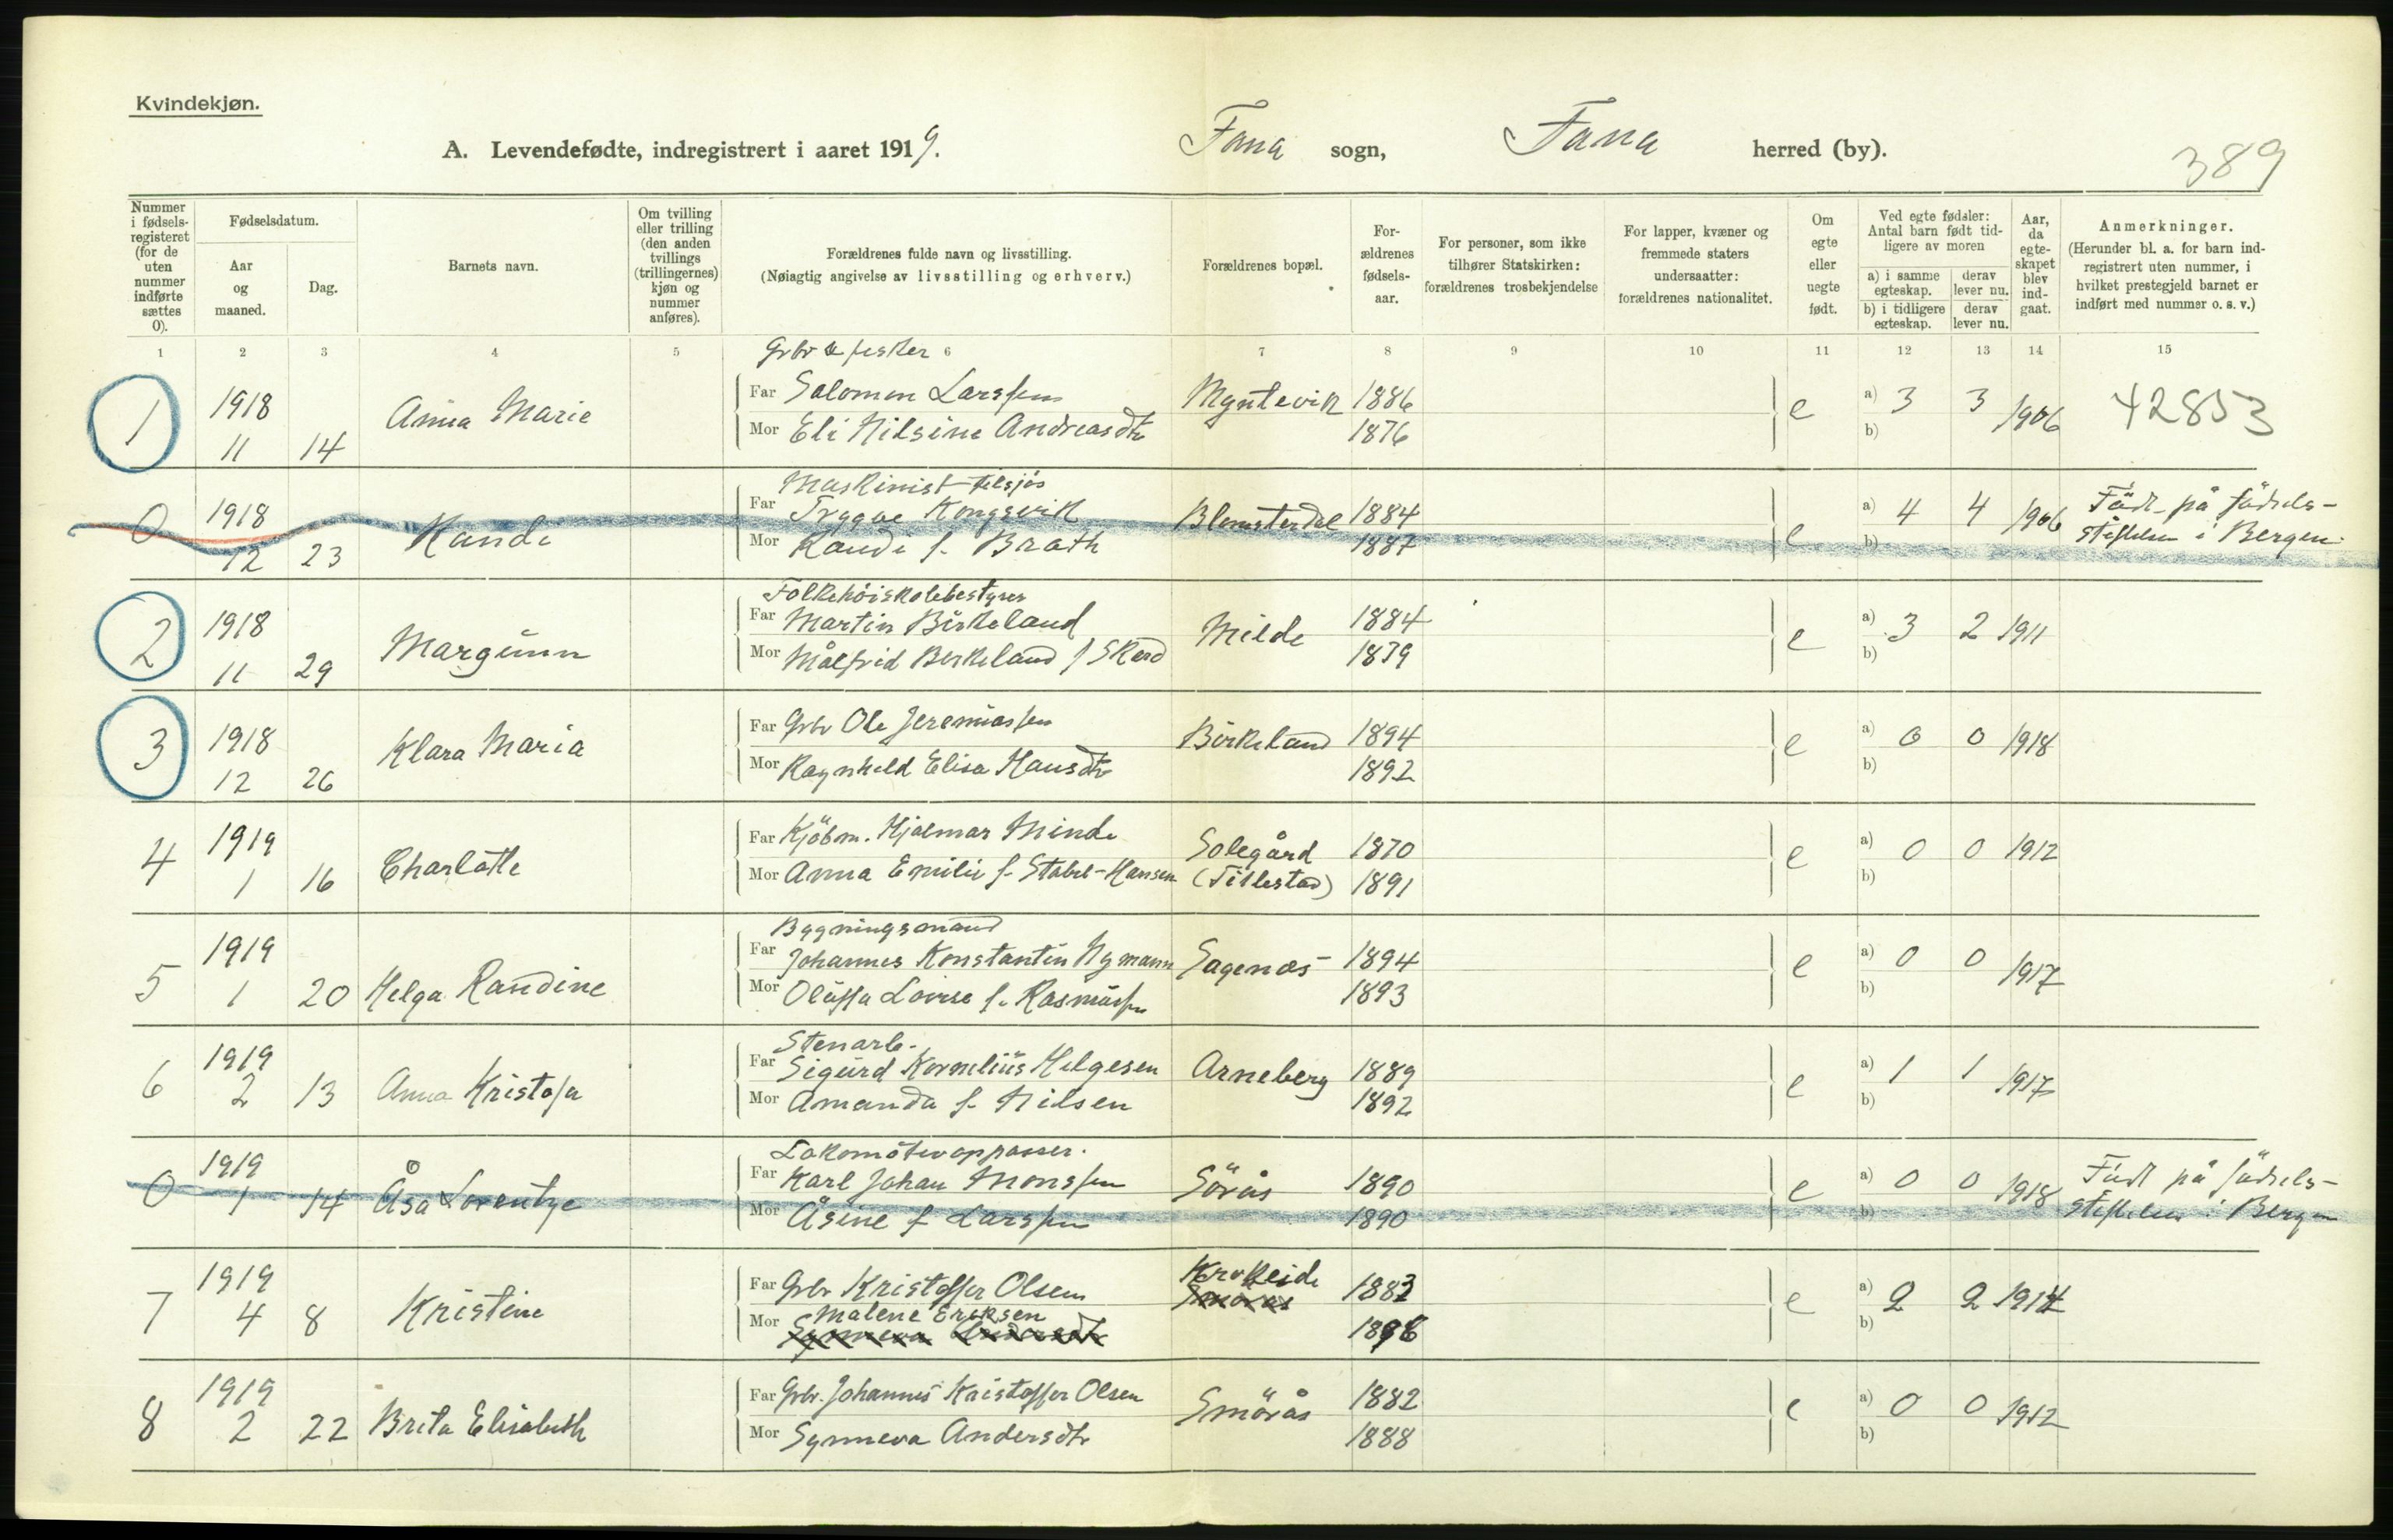 Kvindekjøn.
A. Levendefødte, indregistrert i aaret 1919. Fana sogn, Fana herred (by).
389
Nummer i fødselsregisteret (for de uten nummer indførte sættes 0).
Fødselsdatum.
Aar og maaned.
Dag.
Barnets navn.
Om tvilling eller trilling (den anden tvillings (trillingernes) kjøn og nummer anføres).
Forældrenes fulde navn og livsstilling.
(Nøiagtig angivelse av livsstilling og erhverv.)
Forældrenes bopæl.
Forældrenes fødselsaar.
For personer, som ikke tilhører Statskirken: forældrenes trosbekjendelse
For lapper, kvæner og fremmede staters undersaatter: forældrenes nationalitet.
Om egte eller uegte født.
Ved egte fødsler: Antal barn født tidligere av moren
a) i samme egteskap.
derav lever nu.
b) i tidligere egteskap.
derav lever nu.
Aar, da egteskapet blev indgaat.
Anmerkninger.
(Herunder bl. a. for barn indregistrert uten nummer, i hvilket prestegjeld barnet er indført med nummer o. s. v.)
1 2 3 4 5 6 7 8 9 10 11 12 13 14 15
Grbr & fisker
1 1918 Anna Marie Far Salomon Larssen Myntevik 1886 e a) 3 3 1906 42853
11 14 Mor Eli Nilsine Andreasdtr 1876 b)
Maskinist tilsjøs
0 1918 Randi Far Trygve Kongsvik Blomsterdal 1884 e a) 4 4 1906 Födt på födsels-
12 23 Mor Randi f. Brath 1887 b) stiftelsen i Bergen.
Folkehöiskolebestyrer
2 1918 Margunn Far Martin Birkeland Milde 1884 e a) 3 2 1911
11 29 Mor Målfrid Birkeland f Skard 1879 b)
3 1918 Klara Maria Far Grbr Ole Jeremiassen Birkeland 1894 e a) 0 0 1918
12 26 Mor Ragnhild Elisa Hansdtr 1892 b)
4 1919 Charlotte Far Kjöbm. Hjalmar Minde Solegård 1870 e a) 0 0 1912
1 16 Mor Anna Emilie f. Stabel-Hansen (Tillestad) 1891 b)
Bygningsmand
5 1919 Helga Randine Far Johannes Konstantin Nymann Sagenes 1894 e a) 0 0 1917
1 20 Mor Oluffa Lovise f. Rasmussen 1893 b)
Stenarb.
6 1919 Anna Kristofa Far Sigurd Kornelius Helgesen Arneberg 1889 e a) 1 1 1917
2 13 Mor Amanda f. Nilsen 1892 b)
Lokomotivoppasser.
0 1919 Åsa Lorentze Far Karl Johan Monssen Sörås 1890 e a) 0 0 1918 Födt på födsels-
1 14 Mor Åsine f Larssen 1890 b) stiftelsen i Bergen
7 1919 Kristine Far Grbr Kristoffer Olsen Krokeide Smörås 1883 e a) 2 2 1914
4 8 Mor Malene Eriksen Synneva Andersdtr b)
8 1919 Brita Elisabeth Far Grbr. Johannes Kristoffer Olsen Smörås 1882 e a) 0 0 1912
2 22 Mor Synneva Andersdtr 1888 b)